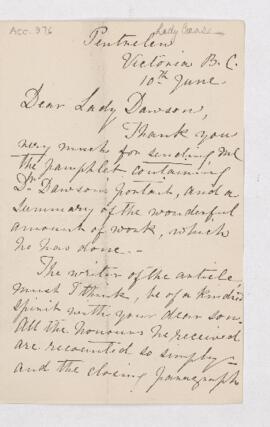 Acc. 976
Lady Crease
Pentrelew
Victoria B.C.
10th June.
Dear Lady Dawson,
Thank you
very much for sending me
the pamphlet containing
Dr. Dawson's portrait, and a
summary of the wonderful
amount of work, which
he has done. -
The writer of the article,
must I think, be of a kindred
spirit with your dear son.
All the honours he received
are recounted so simply -
and the closing paragraph